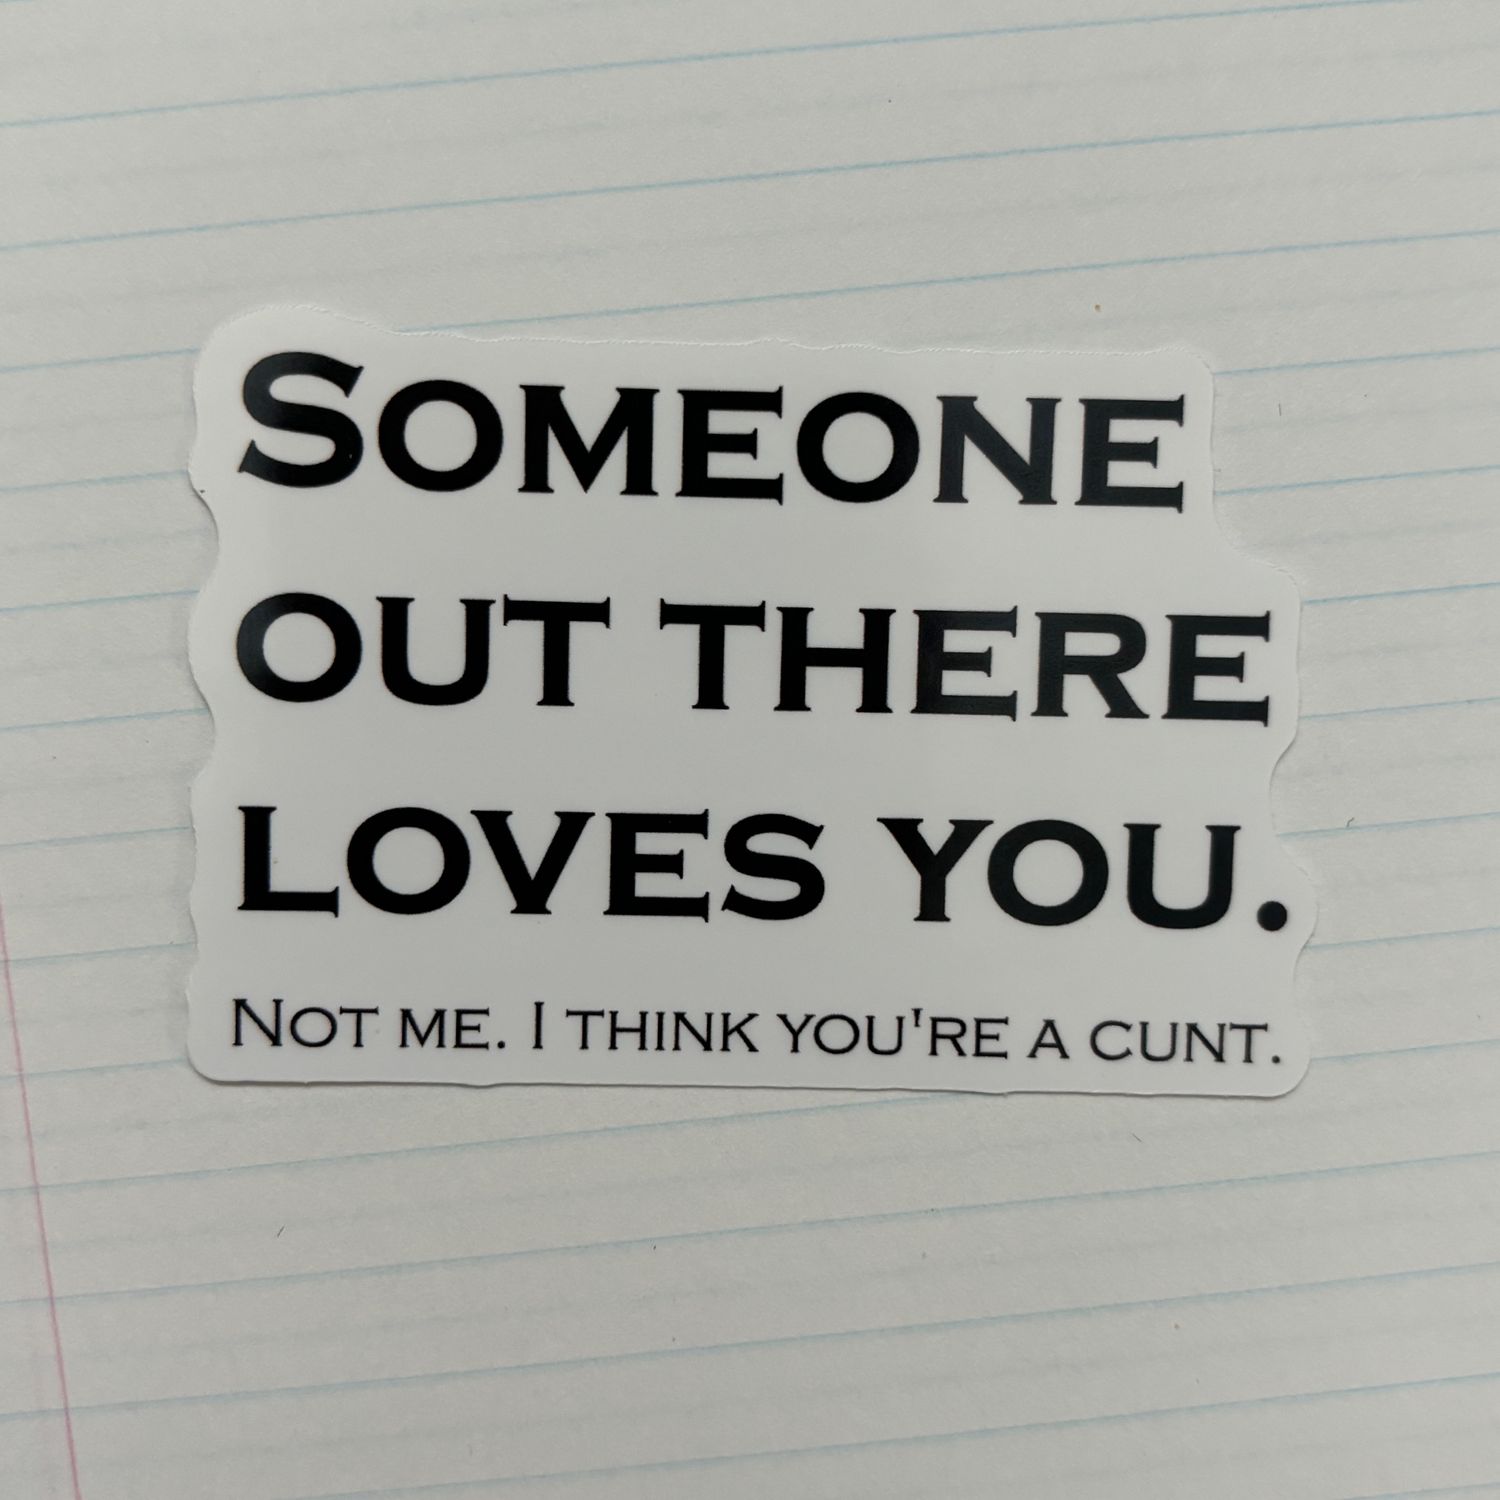 SOMEONE
OUT THERE
LOVES YOU.
NOT ME. I THINK YOU'RE A CUNT.